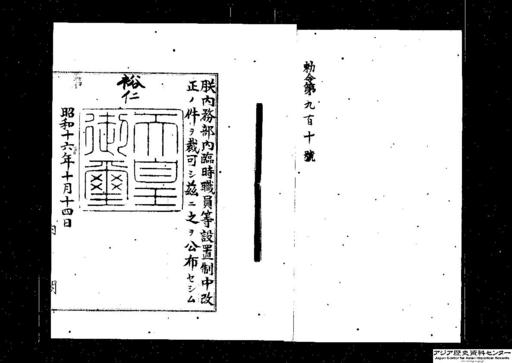 勅令第九百十號
朕內務部內臨時職員等設置制中改
正ノ件ヲ裁可シ茲ニ之ヲ公布セシム
裕仁
天皇
御璽
昭和十六年十月十四日
アジア歴史資料センター
Japan Center for Asian Historical Records